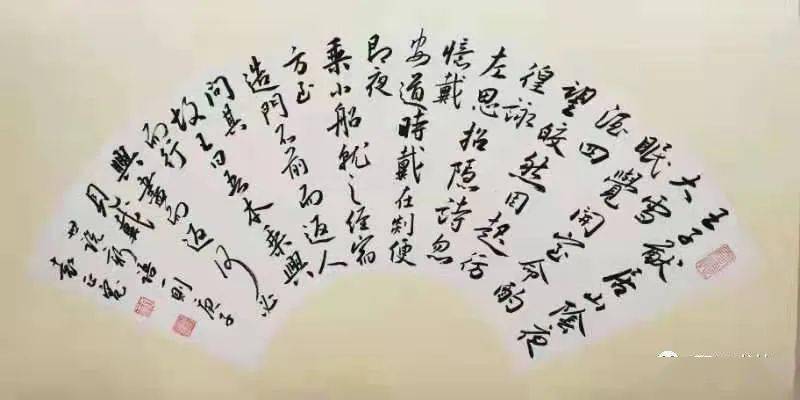 王子猷居山陰夜
大雪
眠覺開室命酌
酒四
望皎然因起彷
徨詠
左思招隱詩忽
憶戴
安道時戴在剡便
即夜
乘小船就之經宿
方至
造門不前而返人
問其
故王曰吾本乘興
而行
興盡而返何必
見戴
世說新語一則庚子